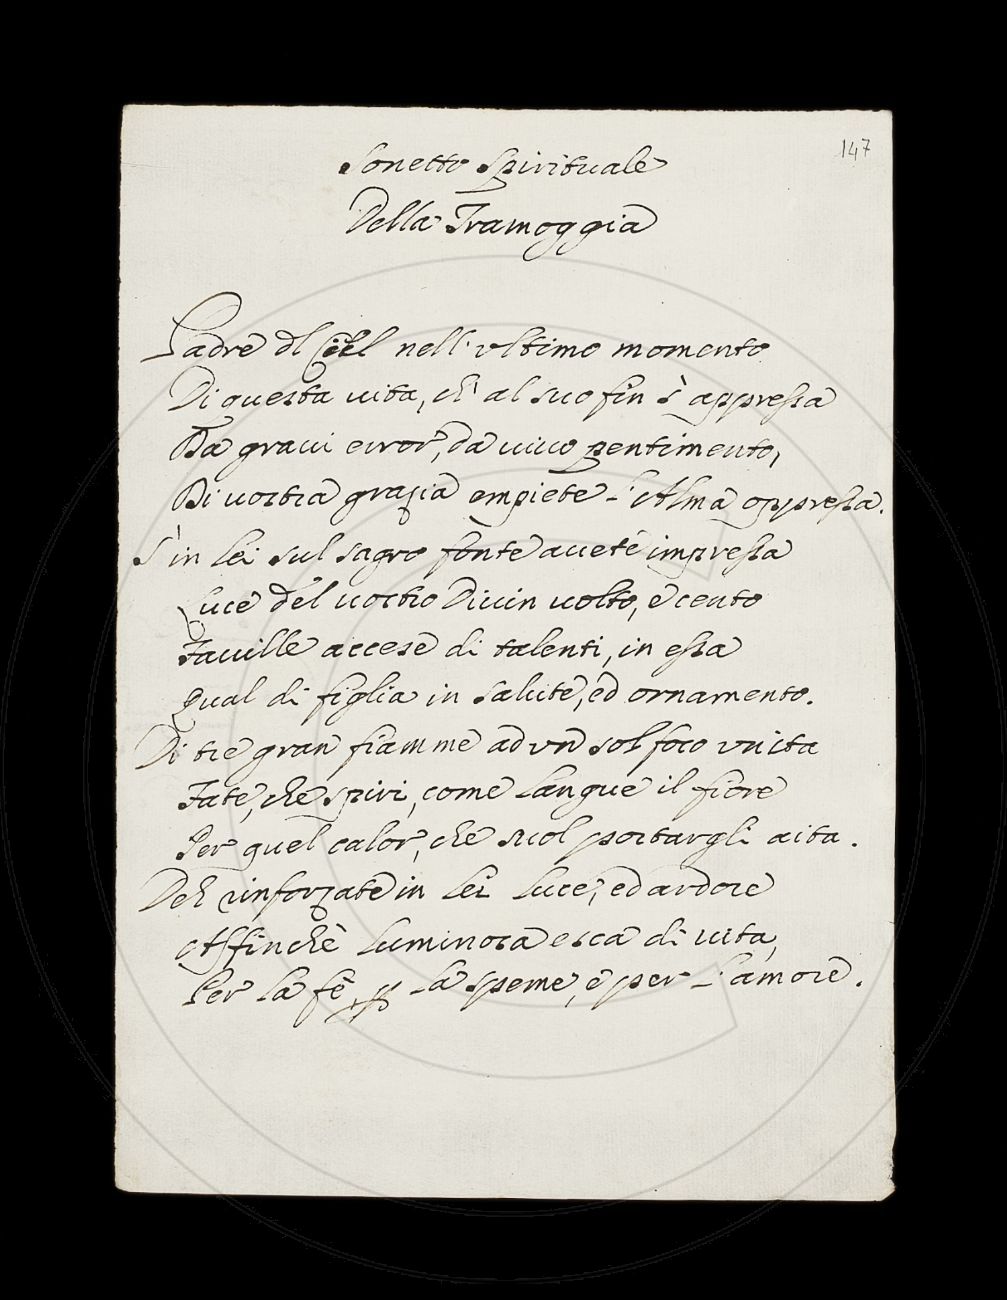 147
Sonetto Spirituale
Della Tramoggia
Padre dl Ciel nell'ultimo momento
Di questa vita, ch'al suo fin s'appressa
Da gravi error, da vivo pentimento,
Di vostra grazia empiete l'Alma oppressa.
S'in lei sul sagro fonte avete impressa
Luce del vostro Divin volto, e cento
Faville accese di talenti, in essa
Qual di figlia in salute, ed ornamento.
Di tre gran fiamme ad vn sol foco vnita
Fate, che spiri, come langue il fiore
Per quel calor, che suol portargli aita.
Deh rinforzate in lei luce, ed ardore
Affinchè luminosa esca di vita,
Per la fè, p la speme, e per l'amore.